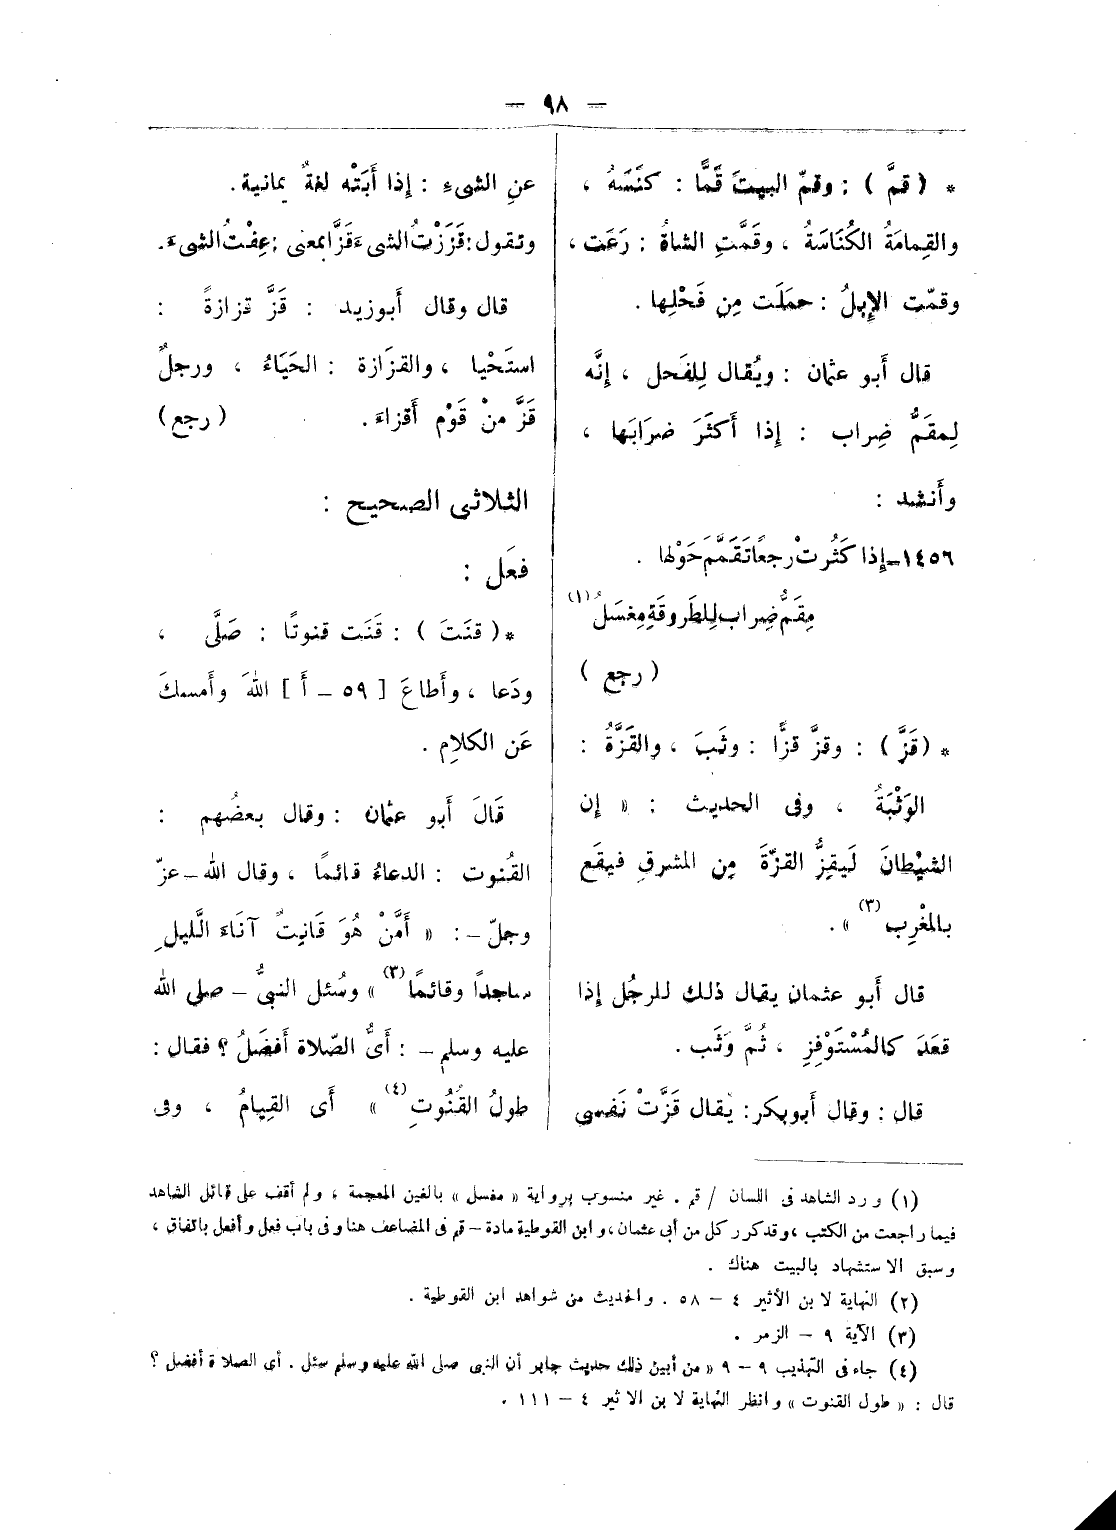 — ٩٨ —
* ( قمَّ ) : وقمّ البيتَ قَمًّا : كَنَسَهُ ،
والقِمامَةُ الكُنَاسَةُ ، وقَمَّتِ الشاةُ : رَعَت ،
وقمّت الإِبلُ : حمَلَت مِن فَحْلِها .
قال أَبو عثمان : ويُقال لِلفَحل ، إِنَّه
لِمقَمُّ ضِراب : إِذا أَكثَرَ ضرَابَها ،
وأَنشد :
١٤٥٦ــ إِذا كَثُرت رجعًا تَقَمَّمَ حَوْلها .
مِقَمُّ ضِراب لِلطَروقَةِ مِغسَلُ (١)
( رجع )
* ( قَزَّ ) : وقزَّ قزًّا : وثَبَ ، والقَزَّةُ :
الوَثْبَةُ ، وفى الحديث : « إِن
الشيْطانَ لَيقِزُّ القزّةَ مِن المشرقِ فيقَع
بالمغْرِب (٣) » .
قال أَبو عثمان يقال ذلك للرجُل إِذا
قعَدَ كالمُسْتَوْفِزِ ، ثُمَّ وَثَب .
قال : وقال أَبوبكر : يُقال قَزَّتْ نَفسى
عنِ الشىءِ : إِذا أَبَتْه لغةٌ يمانية .
وتقول : قَزَزْتُ الشىءَ قَزًّا بمعنى : عِفْتُ الشىءَ .
قال وقال أَبوزيد : قَزَّ قزازةً :
استَحْيا ، والقزَازة : الحَيَاءُ ، ورجلٌ
قَزَّ منْ قَوْم أَقزاءَ . ( رجع )
الثلاثى الصحيح :
فعَل :
* ( قنَتَ ) : قنَت قنوتًا : صَلَّى ،
ودَعا ، وأَطاعَ [ ٥٩ ــ أَ ] اللهَ وأَمسكَ
عَن الكلامِ .
قَالَ أَبو عثمان : وقال بعضُهم :
القُنوت : الدعاءُ قائمًا ، وقال الله ــ عزّ
وجلّ ــ : « أَمَّنْ هُوَ قَانِتٌ آنَاءَ الَّليلِ
ساجداً وقائمًا (٣) » وسُئل النبىُّ ــ صلى الله
عليه وسلم ــ : أَىُّ الصّلاة أَفضَلُ ؟ فقال :
طولُ القُنُوتِ (٤) » أَى القِيامُ ، وفى
(١) ورد الشاهد فى اللسان / قم . غير منسوب برواية « مغسل » بالغين المعجمة ، ولم أقف على قائل الشاهد
فيما راجعت من الكتب ، وقدكرر كل من أبى عثمان ، وابن القوطية مادة ــ قم فى المضاعف هنا وفى باب فعل وأفعل باتفاق ،
وسبق الاستشهاد بالبيت هناك .
(٢) النهاية لابن الأثير ٤ ــ ٥٨ . والحديث من شواهد ابن القوطية .
(٣) الآية ٩ ــ الزمر .
(٤) جاء فى التهذيب ٩ ــ ٩ « من أبين ذلك حديث جابر أن النبى صلى الله عليه وسلم سئل . أى الصلاة أفضل ؟
قال : « طول القنوت » وانظر النهاية لابن الاثير ٤ ــ ١١١ .